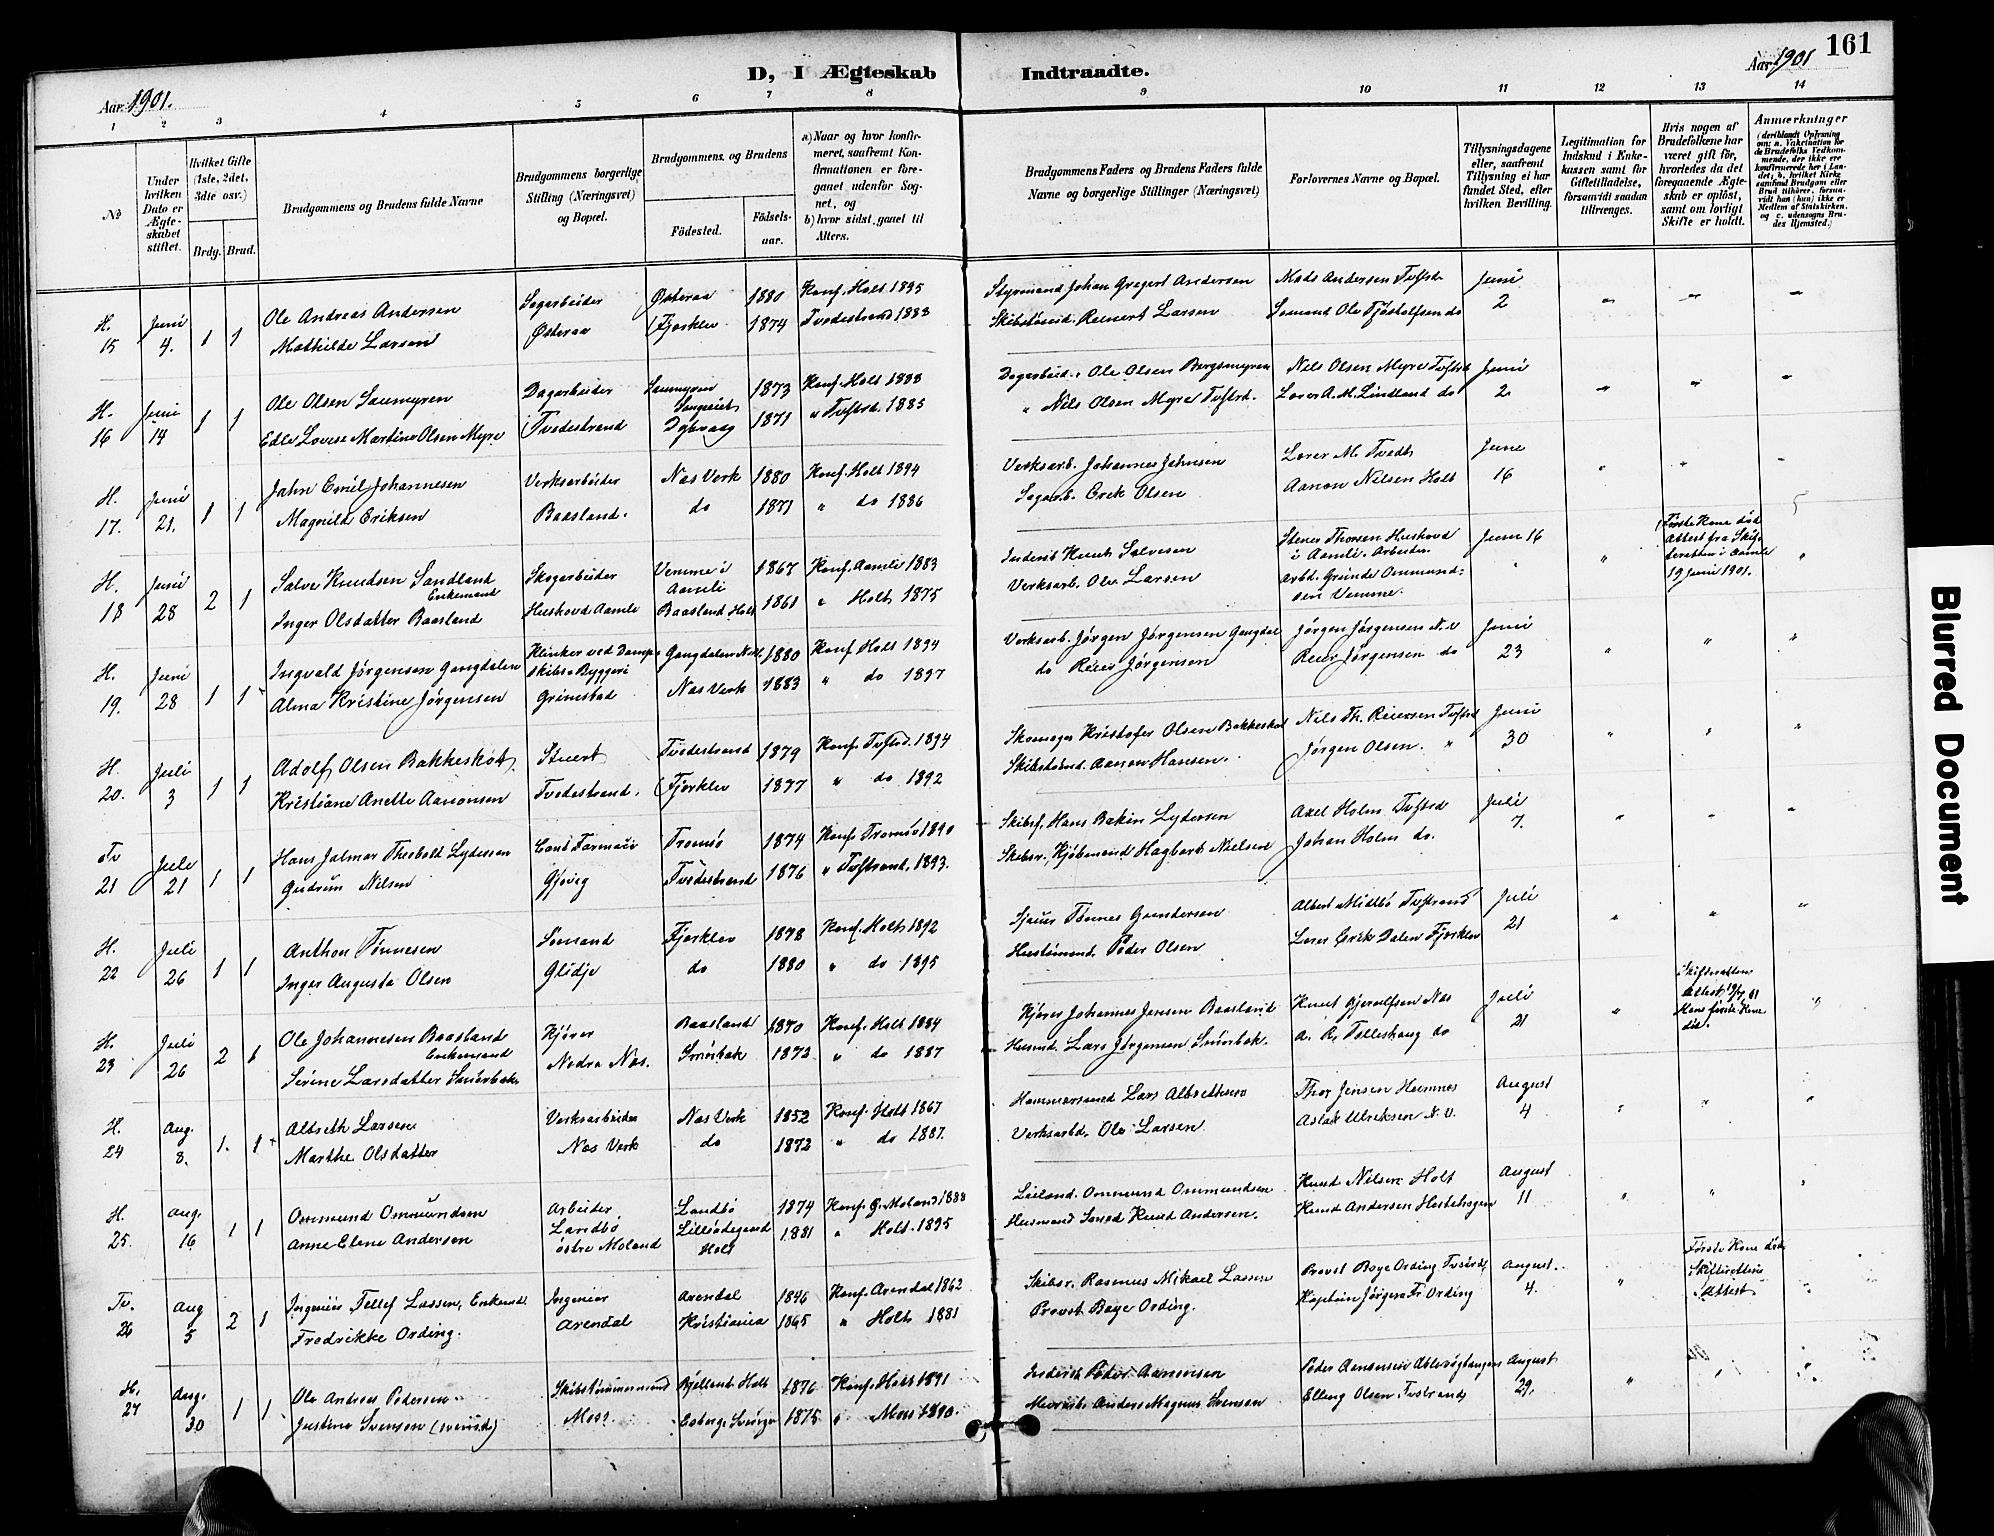 161
D, I Ægteskab Indtraadte.
Aar 1901. Aar 1901
1 2 3 4 5 6 7 8 9 10 11 12 13 14
No
Under hvilken Dato er Ægteskabet stiftet.
Hvilket Gifte (1ste, 2det, 3die osv.)
Brdg. Brud.
Brudgommens og Brudens fulde Navne
Brudgommens borgerlige Stilling (Næringsvei) og Bopæl.
Brudgommens og Brudens
Födested. Födselsaar.
a) Naar og hvor konfirmeret, saafremt Konfirmationen er foregaaet udenfor Sognet, og
b) hvor sidst gaaet til Alters.
Brudgommens Faders og Brudens Faders fulde Navne og borgerlige Stillinger (Næringsvei)
Forlovernes Navne og Bopæl.
Tillysningsdagene eller, saafremt Tillysning ei har fundet Sted, efter hvilken Bevilling.
Legitimation for Indskud i Enkekassen samt for Giftetilladelse, forsaavidt saadan tiltrænges.
Hvis nogen af Brudefolkene har været gift før, hvorledes da det foregaaende Ægteskab er opløst, samt om lovligt Skifte er holdt.
Anmærkninger
H. 15 Juni 4. 1 1 Ole Andreas Andersen Sagarbeider Østeraa 1880 Konf. Holt 1895 Styrmand Johan Gregert Andersen Mads Andersen Tvfstd Juni 2
Mathilde Larsen Østeraa Fjærklev 1874 Tvedestrand 1883 Skibstømd. Reinert Larsen Sømand Ole Tjøstolfsen do
H. 16 Juni 14 1 1 Ole Olsen Saumyren Dagarbeider Saumyren 1873 Konf. Holt 1888 Dagarbeid. Ole Olsen Bergsmyren Nils Olsen Myre Tvfstd Juni 2
Edle Lovise Martine Olsen Myre Tvedestrand Dybvaag 1871 " Tvfstd. 1885 " Nils Olsen Myre Tvfstrd. Lærer A. M. Lindland do
H. 17. Juni 21. 1 1 Jahn Emil Johannesen Verksarbeider Næs Verk 1880 Konf. Holt 1894 Verksarb. Johannes Jahnsen Lærer M. Tvedt Juni 16
Magnild Eriksen Baasland. do 1871 " do 1886 Sagarb. Erik Olsen Aanon Nilsen Holt
H. 18 Juni 28 2 1 Salve Knudsen Sandland Enkemand Skogarbeider Vemme i Aamli 1867 Konf. Aamli 1883 Inderst Knut Salvesen Stener Thorsen Huskovd i Aamli. Arbeider. Juni 16 Første Kone død Attest fra Skifteretten i Aamli 19 Juni 1901.
Inger Olsdatter Baasland Huskovd Aamli Baasland Holt 1861 " Holt 1875 Verksarb. Ole Larsen Arbd. Gunde Ommundsen Vemme.
H. 19. Juni 28 1 1 Ingvald Jørgensen Gangdalen Klinker ved Dampskibs-Byggeri Gangdalen Holt 1880 Konf Holt 1894 Verksarb. Jørgen Jørgensen Gangdal Jørgen Jørgensen N. v Juni 23
Alma Kristine Jørgensen Grimstad Næs Verk 1883 " do 1897 do Reier Jørgensen Reier Jørgensen do
H. 20. Juli 3 1 1 Adolf Olsen Bakkeskot Stuert Tvedestrand 1879 Konf. Tvfstd. 1894 Skomager Kristofer Olsen Bakkeskot Nils Th. Reiersen Tvfstd Juni 30
Kristiane Anette Aanonsen Tvedestrand. Fjærklev 1877 " do 1892 Skibstømd. Aanon Hansen. Jørgen Olsen. "
Tv 21 Juli 21 1 1 Hans Jalmar Theobald Lydersen Cand Farmaci Tromsø 1874 Konf. Tromsø 1890 Skibsf. Hans Bakin Lydersen Axel Holm Tvfstd Juli 7.
Gudrun Nilsen Gjøvig Tvedestrand 1876 " Tvfstrand. 1893. Skibsr. Kjøbmand Hagbart Nielsen Johan Holm do.
H. 22 Juli 26 1 1 Anthon Tønnesen Sømand Fjærklev 1878 Konf. Holt 1892 Sjauer Tønnes Gundersen Albert Midbø Tvfstrand Juli 21
Inger Augusta Olsen Glidje do 1880 " do 1895 Hustømand. Peder Olsen Lærer Erik Dalen Fjærklev
H. 23 Juli 26 2 1 Ole Johannesen Baasland Enkemand Kjører Baasland 1870 Konf. Holt 1884 Kjører Johannes Jensen Baasland Knut Gjerulfsen Næs Juli 21 Skifterettens Attest 19/7 01 Hans første Kone død.
Serine Larsdatter Smørbæk Nedre Næs. Smørbæk 1872 " do 1887 Husmd. Lars Jørgensen Smørbæk. A. R. Telleshaug do
H. 24 Aug. 8. 1. 1 Albreth Larsen Verksarbeider Næs Verk 1852 Konf. Holt 1867 Hammersmed Lars Albrethsen Thor Jensen Hammes August 4
Marthe Olsdatter Næs Verk do 1872 " do 1887. Verksarbd. Ole Larsen Aslak Ulriksen N. V.
H. 25. Aug. 16 1 1 Ommund Ommundsen Arbeider Landbø 1874 Konf. Ø. Moland 1888 Leiland. Ommund Ommundsen Knud Nilsen Holt August 11
Anne Elene Andersen Landbø østre Moland Lillødegaard Holt 1881 " Holt. 1895 Husmand Smed Knud Andersen. Knud Andersen Hestehagen
Tv. 26 Aug 5 2 1 Ingeniør Tellef Lassen, Enkemd. Ingeniør Arendal 1846 Konf. Arendal 1862 Skibsr. Rasmus Mikael Lassen Provst Boye Ording Tvstrd August 4. Første Kone død. Skifterettens Attest
Fredrikke Ording. Arendal Kristiania 1865 " Holt 1881 Provst Boye Ording. Kaptein Jørgen Fr Ording
H. 27 Aug. 30 1 1 Ole Andreas Pedersen. Skibstømmermand Gjelland Holt 1876 Konf. Holt 1891 Inderst Peder Aanonsen Peder Aanonsen August 29.
Justine Svensen (svensk) Moss Sverige 1875 " Moss 1890. Anders Magnus Svensen Elling Olsen Tvstrand
Blurred Document